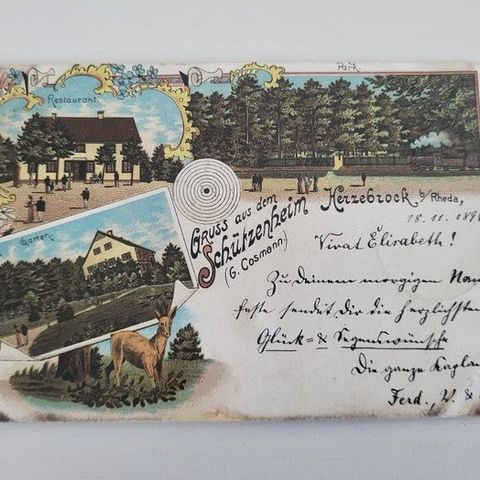 Park.
Restaurant.
Garten.
Gruss aus dem
Schützenheim
(G. Cosmann.)
Herzebrock b/Rheda,
18. 11. 189
Vivat Elisabeth!
Zu deinem morgigen Nam
feste sendet dir die herzlichsten
Glück- & Segenswünsche
Die ganze Kaplan
Ferd., V. &